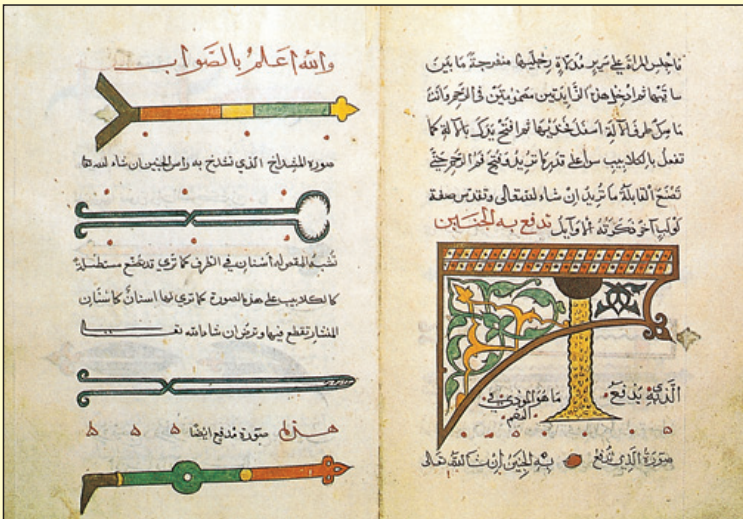 فاجلس المراة على سرير مدلاة رجليها منفرجة ما بين
ساقيها ثم ادخل هذا الزايدتين مضمومتين في الرحم وانت
ماسك طرف الالة اسفل فخذيها ثم افتح يدك بالالة كما
تفعل بالكلاليب سوا على قدر ما تريد فتح فم الرحم حتى
تصنع القابلة ما تريد ان شاء الله تعالى
لولب آخر ذكرته الاوايل تدفع به الجنين
الذي يدفع
صورة الذي تدفع به الجنين ان شا الله تعالى
والله اعلم بالصواب
صورة المشداخ الذي تشدخ به راس الجنين ان شاء الله
تشبه المقص له أسنان في الطرف كما تري قد تصنع مستطيلة
كالكلاليب على هذه الصورة كما تري لها اسنان كاسنان
المنشار تقطع فيها وترض ان شاء الله
صورة مدفع ايضا